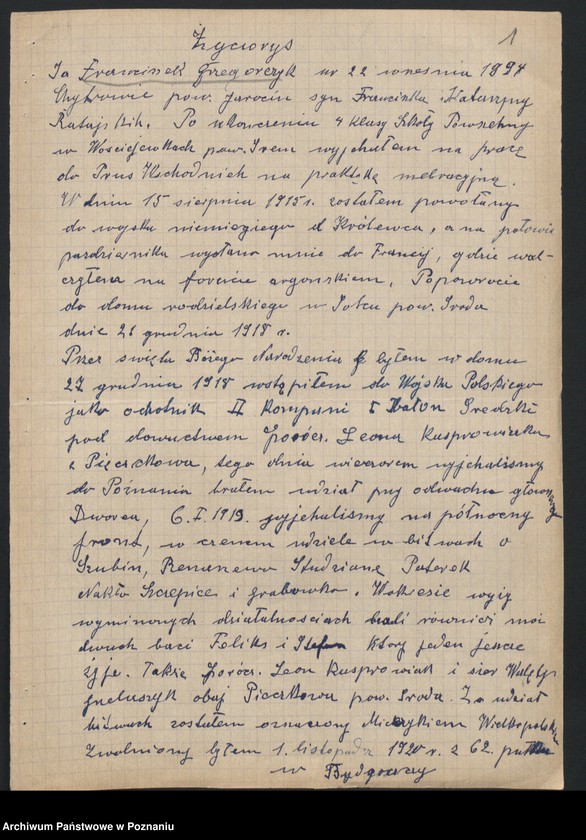 Życiorys
1
Ja Franciszek Gregorczyk ur 22 wnesnia 1894
pow. Jarocin syn Franciszka i Katarzyny
Po ukonczeniu 4 klasy Szkoły
w pow. wyjchałem na pracę
do Prus Wschodnich na praktykę melioracyjną.
W dniu 15 sierpnia 1915 r. zostałem powołany
do wojska niemieggo d Królewca, a na połowie
pazdziernika wysłano mnie do Francji, gdzie wal-
czyłem na froncie argońskiem. Po powrocie
do domu rodzielskiego w pow. Sroda
dnie 21 grudnia 1918 r.
Przez swięta Bożego Narodzenia byłem w domu
27 grudnia 1918 wstąpiłem do Wojska Polskiego
jako ochotnik II Kompani 5 Bałon Sredzki
pod dowuctwem poróch. Leona Kasprowiaka
z Pięczkowa, tego dnia wieczorem wyjchalismy
do Poznania brałem udział pzy odwachu głownego
Dworca, 6. I. 1919. wyjchalismy na północny
front, w czenem udziele w bitwach o
Szubin, Studzianę Paterek
Nakło i grabowko. W okresie wyżej
wyminonych działalnosciach brali równiez moi
dwuch baci Feliks i Stefan ktory jeden jescze
żyje. Także poróch. Leon Kasprowiak i sier
obaj Pieczkowa pow. Sroda. Za udział
bitwach zostałem oznaczony Wielkopolskim
Zwolniony byłem 1. listopada 1920 r. z 62. pułku
w Bydgoszczy
Archiwum Państwowe w Poznaniu